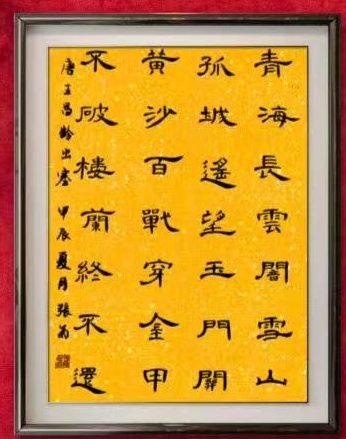 青海長雲闇雪山
孤城遙望玉門關
黃沙百戰穿金甲
不破樓蘭終不還
唐王昌齡出塞 甲辰夏月 張